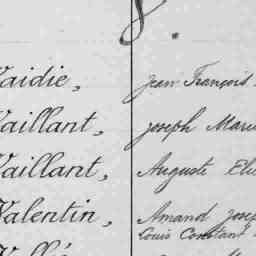 Vaidie, Jean François
Vaillant, Joseph Marie
Vaillant, Auguste
Valentin, Amand Joseph
Louis Constant
Vallé